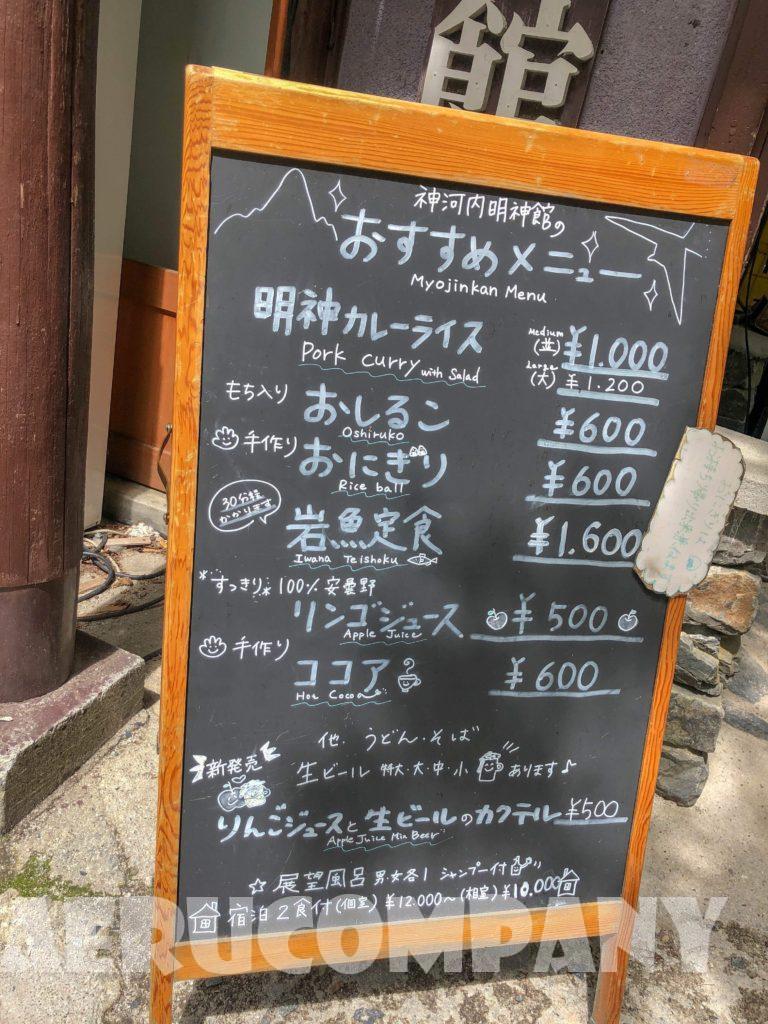 館
神河内明神館の
おすすめメニュー
Myojinkan Menu
明神カレーライス Medium (並) ¥1.000
Pork curry with Salad Large (大) ¥1.200
もち入り おしるこ ¥600
Oshiruko
手作り おにぎり ¥600
Rice ball
30分程かかります
岩魚定食 ¥1.600
Iwana Teishoku
*すっきり* 100% 安曇野
リンゴジュース ¥500
Apple Juice
手作り ココア ¥600
Hot Cocoa
他. うどん.そば
新発売 生ビール 特大・大・中・小 あります♪
りんごジュースと生ビールのカクテル ¥500
Apple Juice Mix Beer
☆展望風呂 男.女各1 シャンプー付
宿泊2食付(個室) ¥12.000〜(相室)¥10.000
AERUCOMPANY